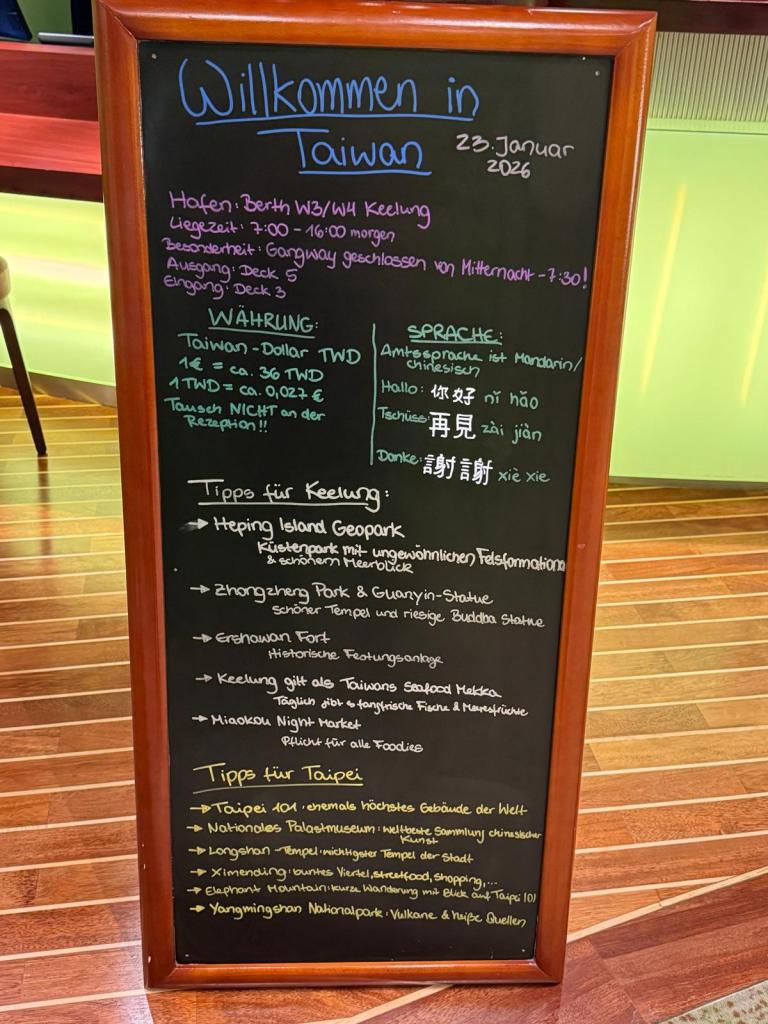 Willkommen in
Taiwan
23. Januar
2026
Hafen: Berth W3/W4 Keelung
Liegezeit: 7:00 - 16:00 morgen
Besonderheit: Gangway geschlossen von Mitternacht - 7:30!
Ausgang: Deck 5
Eingang: Deck 3
WÄHRUNG:
Taiwan-Dollar TWD
1€ = ca. 36 TWD
1 TWD = ca. 0,027 €
Tausch NICHT an der
Rezeption!!
SPRACHE:
Amtssprache ist Mandarin/
chinesisch
Hallo: 你好 nǐ hǎo
Tschüss: 再見 zài jiàn
Danke: 謝謝 xiè xie
Tipps für Keelung:
→ Heping Island Geopark
Küstenpark mit ungewöhnlichen Felsformationen
& schönem Meerblick
→ Zhongzheng Park & Guanyin-Statue
schöner Tempel und riesige Buddha Statue
→ Ershawan Fort
Historische Festungsanlage
→ Keelung gilt als Taiwans Seafood Mekka
Täglich gibt es fangfrische Fische & Meeresfrüchte
→ Miaokou Night Market
Pflicht für alle Foodies
Tipps für Taipei
→ Taipei 101: ehemals höchstes Gebäude der Welt
→ Nationales Palastmuseum: weltbeste Sammlung chinesischer
Kunst
→ Longshan-Tempel: wichtigster Tempel der Stadt
→ Ximending: buntes Viertel, streetfood, shopping,...
→ Elephant Mountain: kurze Wanderung mit Blick auf Taipei 101
→ Yangmingshan Nationalpark: Vulkane & heiße Quellen